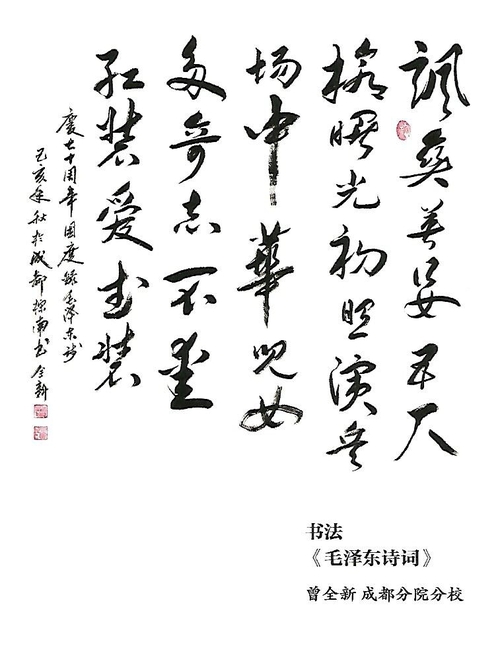 飒爽英姿五尺
槍曙光初照演兵
场中華児女
多奇志不爱
红装爱武装
庆七十周年国庆録毛泽东诗
己亥年秋於成都南书全新
书法
《毛泽东诗词》
曾全新 成都分院分校